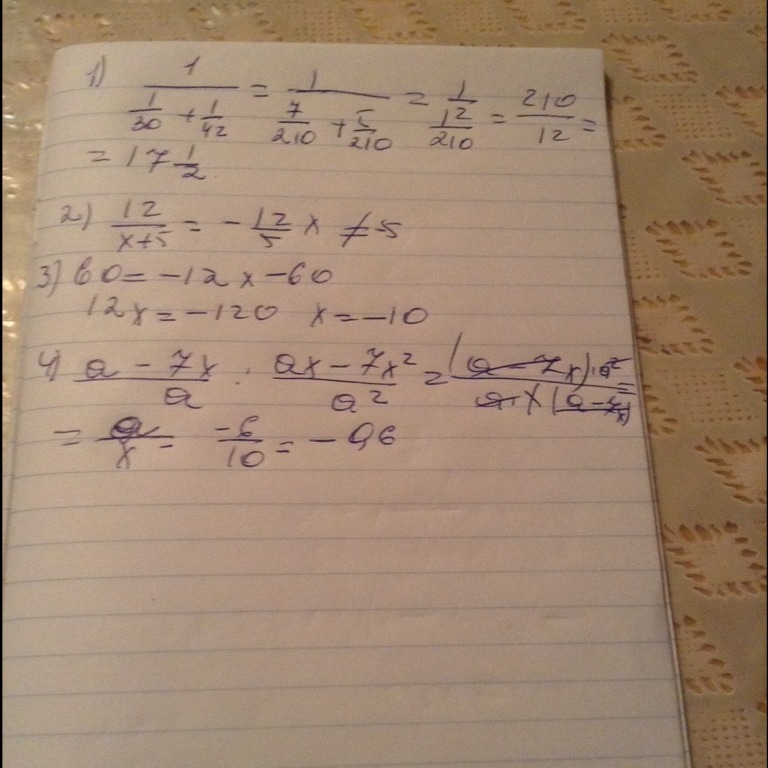 1) 1/(1/30 + 1/42) = 1/(7/210 + 5/210) = 1/(12/210) = 210/12 =
= 17 1/2.
2) 12/(x+5) = - 12/5 x ≠ -5
3) 60 = -12x - 60
12x = -120 x = -10
4) (a - 7x)/a : (ax - 7x²)/a² = ((a - 7x) · a²)/(a · x (a - 7x)) =
= a/x = -6/10 = -0,6